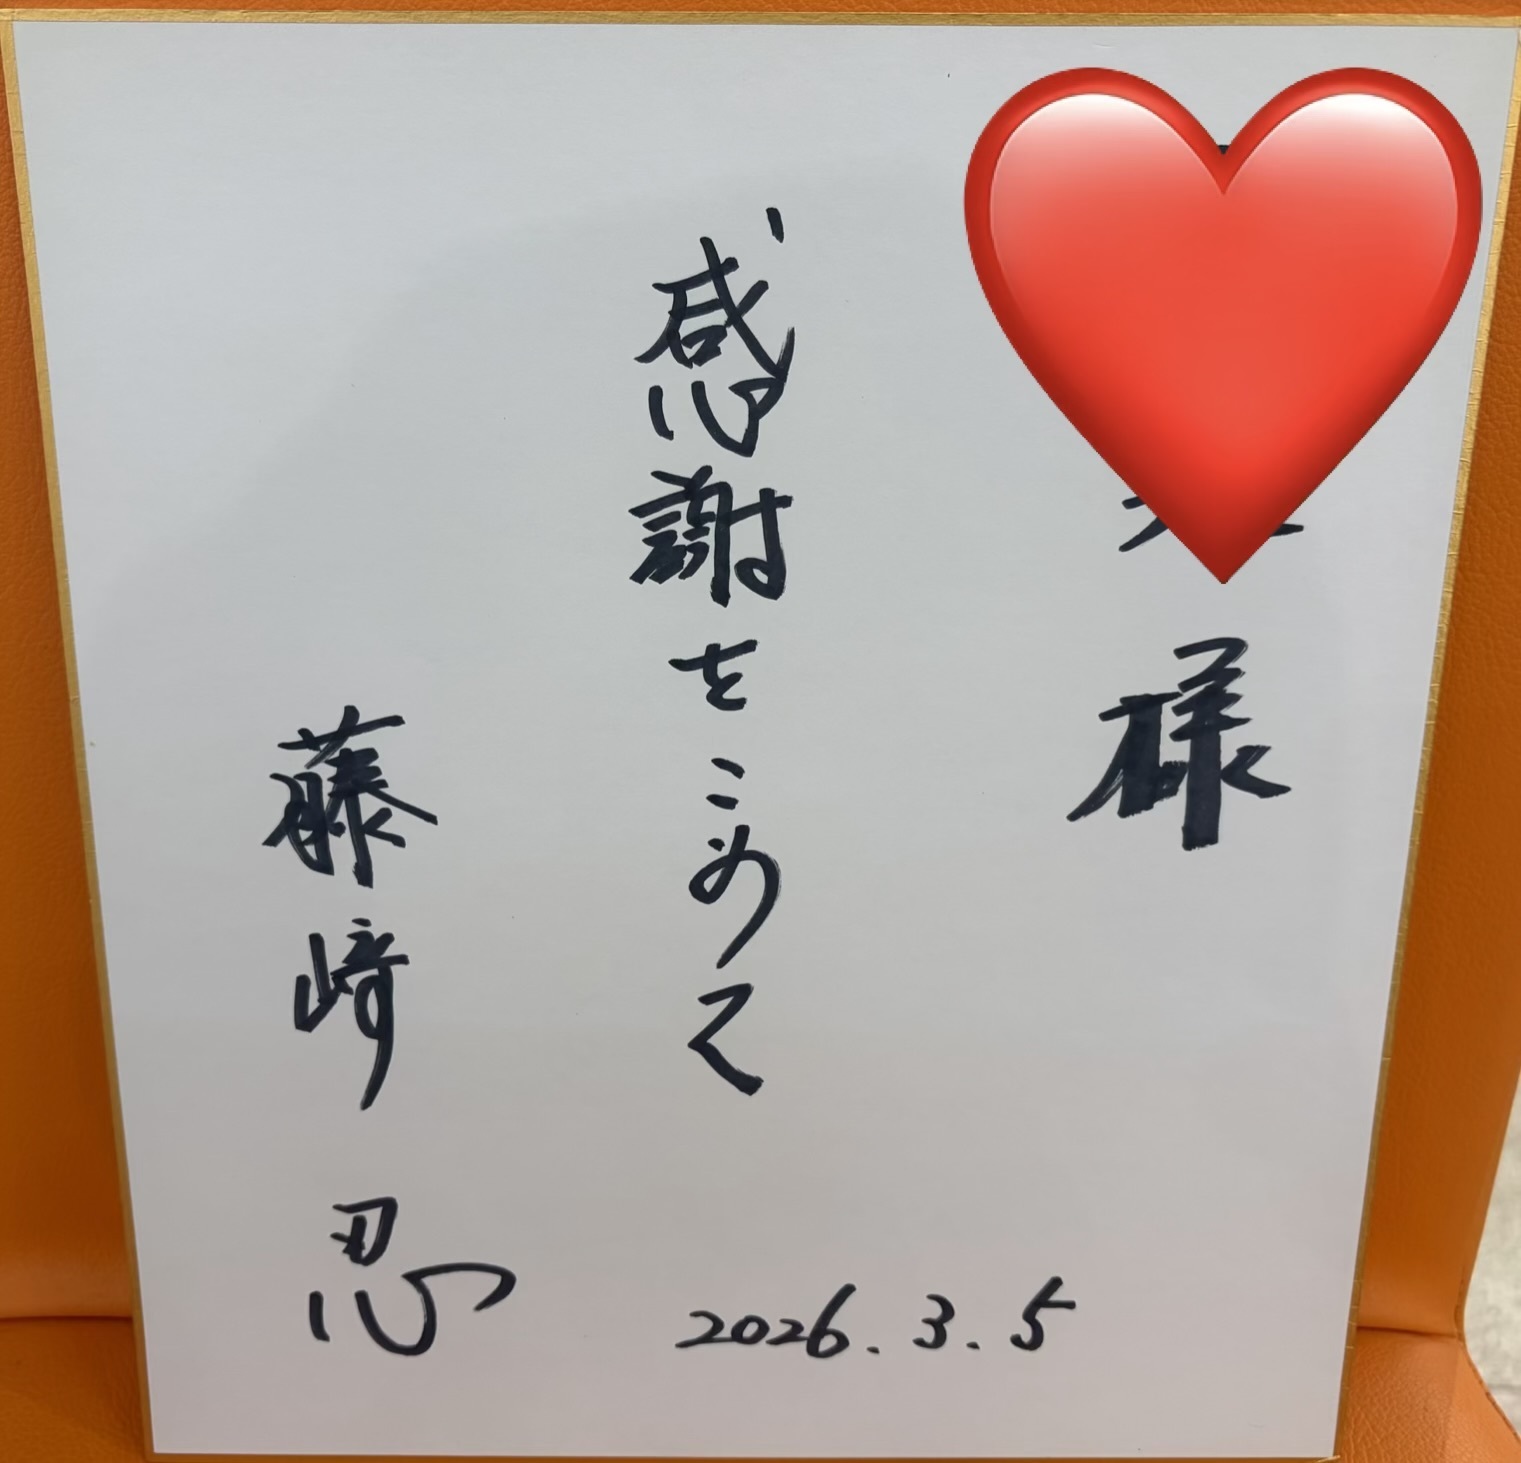 様
感謝をこめて
藤﨑忍
2026.3.5